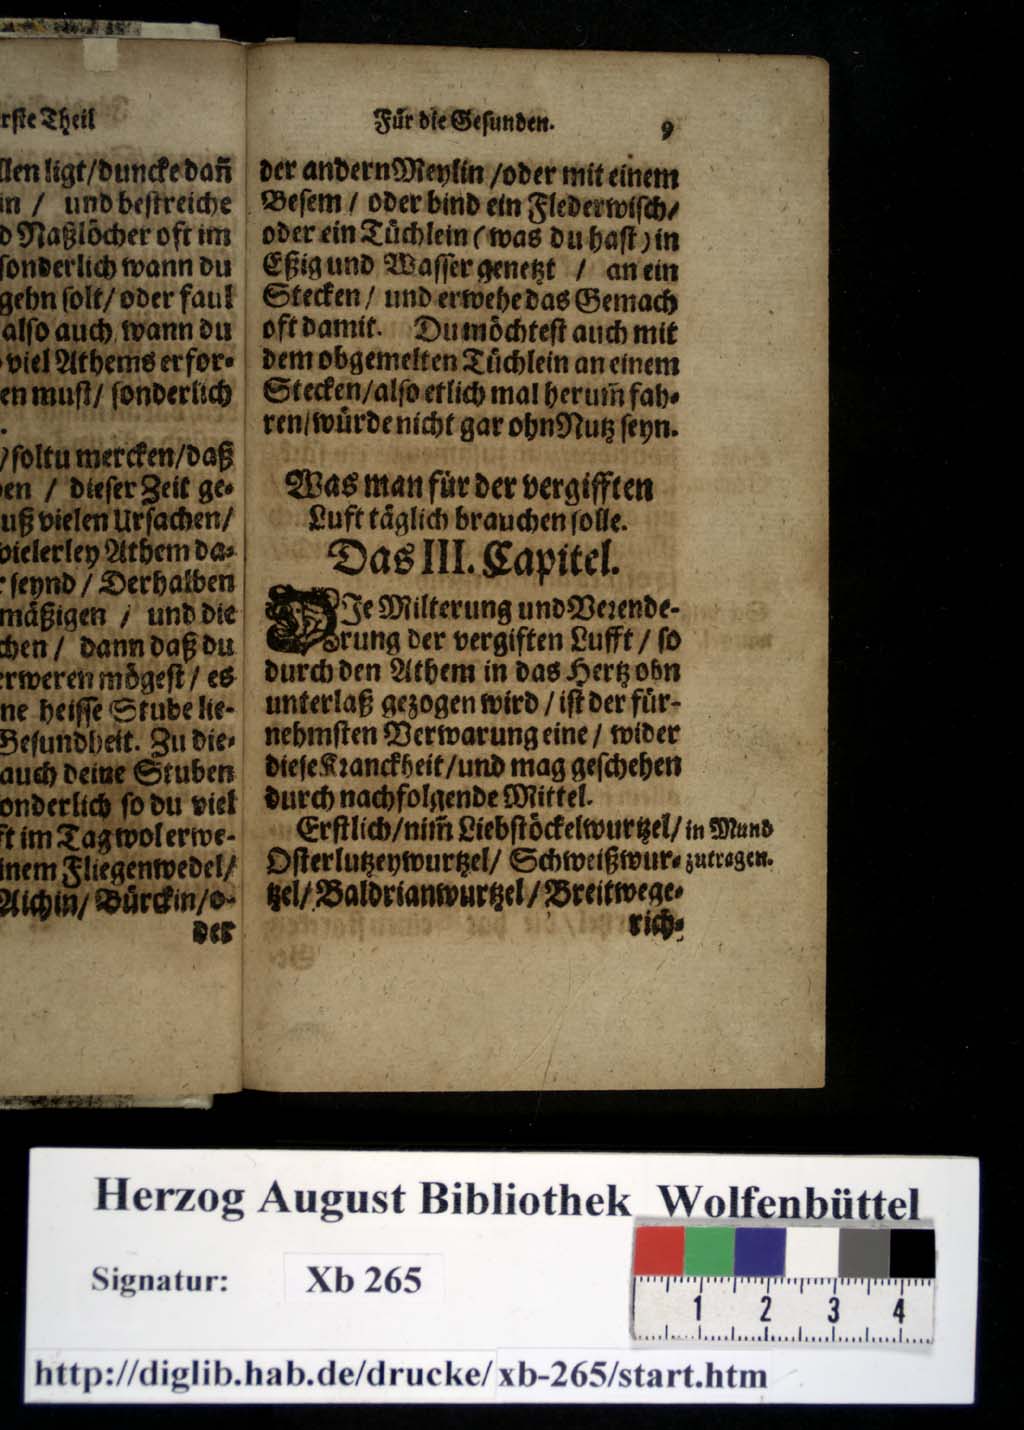 rste Theil
llen ligt/duncke dañ
in / und bestreiche
d Naßlöcher oft im
sonderlich wann du
gehn solt/ oder faul
also auch wann du
viel Athems erfor-
en must/ sonderlich
.
)soltu mercken/daß
en / dieser Zeit ge-
uß vielen Ursachen/
vielerley Athem da-
r seynd / Derhalben
mäßigen / und die
chen / dann daß du
erweren mögest / es
ne heisse Stube lie-
Gesundheit. Zu die-
auch deine Stuben
onderlich so du viel
ft im Tag wol erwe-
inem Fliegenwedel/
Aichin/ Bürckin/o-
der
Für die Gesunden. 9
der andern Meylin /oder mit einem
Besem / oder bind ein Flederwisch/
oder ein Tüchlein (was du hast) in
Eßig und Wasser genetzt / an ein
Stecken / und erwehe das Gemach
oft damit. Du möchtest auch mit
dem obgemelten Tüchlein an einem
Stecken/also etlich mal herum̃ fah-
ren/würde nicht gar ohn Nutz seyn.
Was man für der vergifften
Luft täglich brauchen solle.
Das III. Capitel.
DIe Milterung und Verende-
rung der vergiften Lufft / so
durch den Athem in das Hertz ohn
unterlaß gezogen wird / ist der für-
nehmsten Verwarung eine / wider
diese Kranckheit/und mag geschehen
durch nachfolgende Mittel.
Erstlich/nim̃ Liebstöckelwurtzel/ in Mund
Osterlutzeywurtzel/ Schweißwur- zutragen.
tzel/ Baldrianwurtzel / Breitwege-
rich-
Herzog August Bibliothek Wolfenbüttel
Signatur: Xb 265
1 2 3 4
http://diglib.hab.de/drucke/xb-265/start.htm